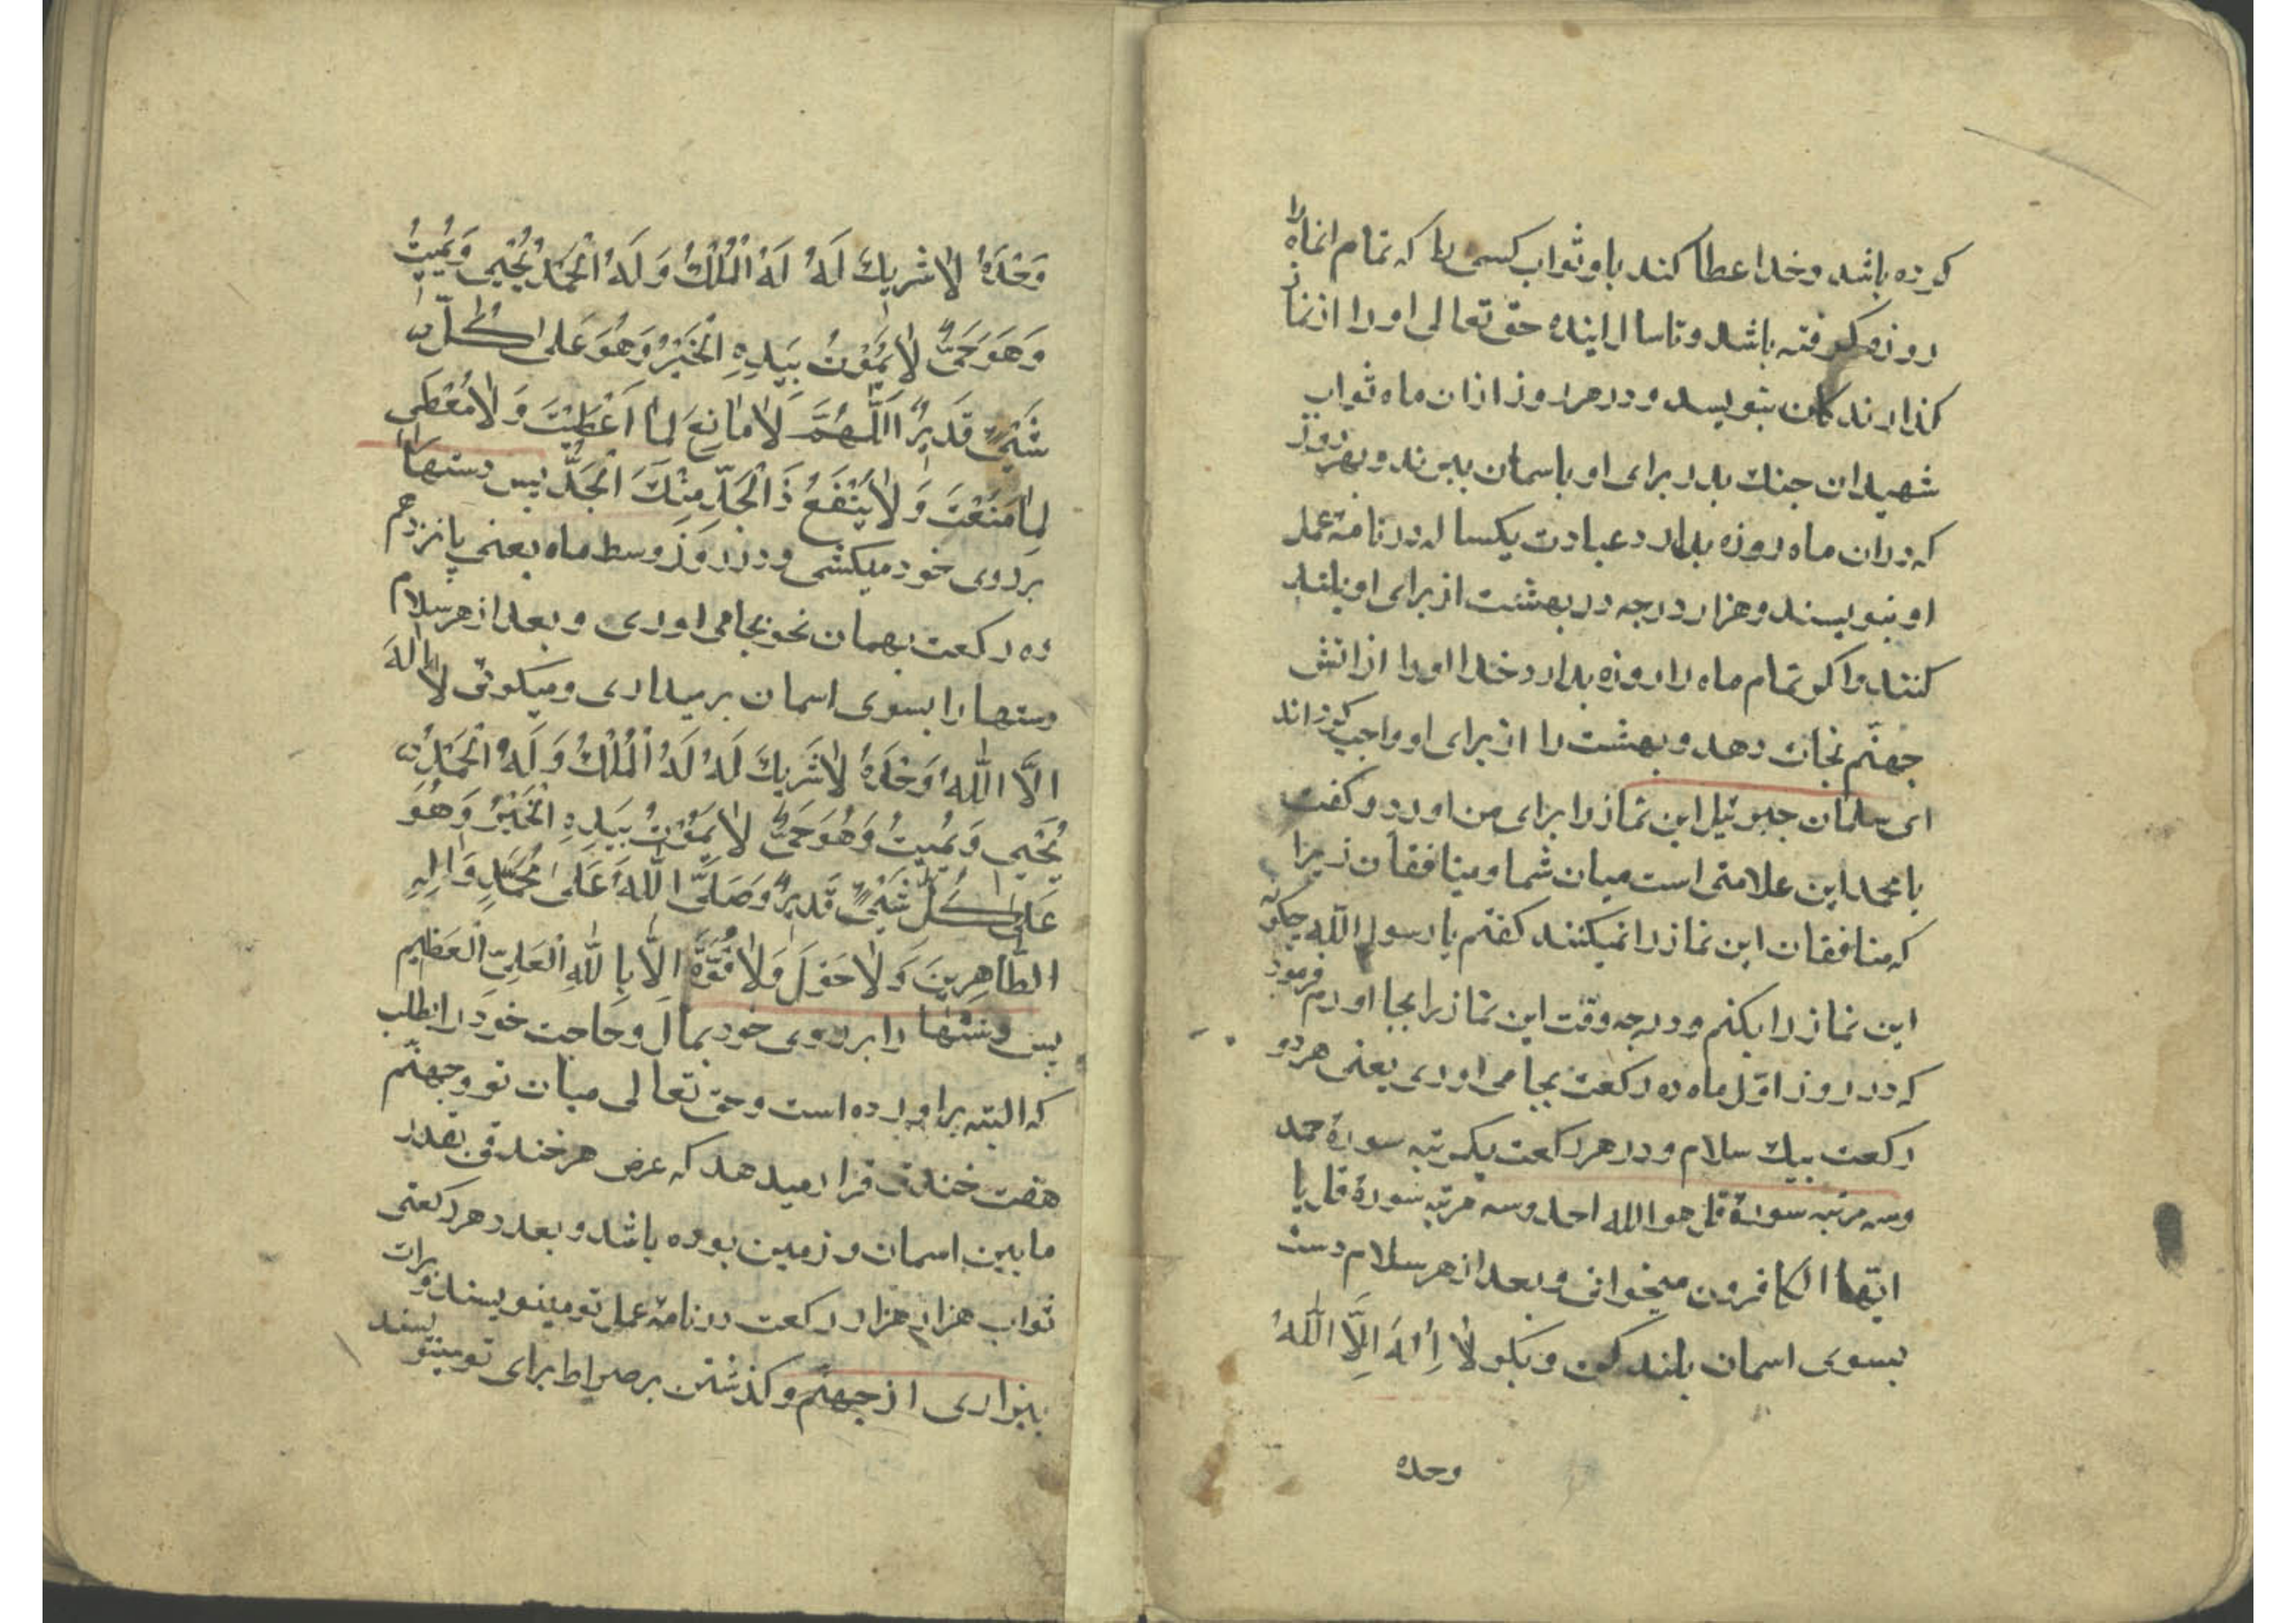 کرده باشد و خدا عطا کند باو ثواب کسی را که تمام انماه را
روزه گرفته باشد و تا سال اینده حق تعالی او را از نماز
کذارندکان بنویسد و در هر روز ازان ماه ثواب
شهیدان جنك بدر برای او باسمان بیرند و بهر روز
که دران ماه روزه بدارد عبادت یکساله در نامهٔ عمل
او بنویسند و هزار درجه در بهشت از برای او بلند
کنند و اکر تمام ماه را روزه بدارد خدا او را از اتش
جهنّم نجات دهد و بهشت را از برای او واجب کرداند
ای سلمان جبرئیل این نماز را برای من اورد و کفت
یا محمد این علامتی است میان شما و منافقان زیرا
که منافقان این نماز را نمیکنند کفتم یا رسول اللّه چکونه
این نماز را بکنم و در چه وقت این نماز را بجا اورم فرمود
که در روز اوّل ماه ده رکعت بجا می اوری یعنی هر دو
رکعت بیك سلام و در هر رکعت یکمرتبه سورهٔ حمد
و سه مرتبه سورهٔ قل هو الله احد و سه مرتبه سورهٔ قل یا
ایّها الکافرون میخوانی و بعد از هر سلام دست
بسوی اسمان بلند کن و بکو لَا اِلٰهَ اِلَّا اللّٰهُ
وحده
وَحْدَهُ لَا شَرِیكَ لَهُ لَهُ الْمُلْكُ وَلَهُ الْحَمْدُ یُحْیِی وَیُمِیتُ
وَهُوَ حَیٌّ لَا یَمُوْتُ بِیَدِهِ الْخَیْرُ وَهُوَ عَلٰی كُلِّ
شَیْیءٍ قَدِیرٌ اَللّٰهُمَّ لَا مَانِعَ لِمَا اَعْطَیْتَ وَلَا مُعْطِیَ
لِمَا مَنَعْتَ وَلَا یَنْفَعُ ذَا الْجَدِّ مِنْكَ الْجَدُّ پس دستها را
بر روی خود میکشی و در روز وسط ماه یعنی پانزدهم
ده رکعت بهمان نحو بجا می اوری و بعد از هر سلام
دستها را بسوی اسمان بر میداری و میکوئی لَا اِلٰهَ
اِلَّا اللّٰهُ وَحْدَهُ لَا شَرِیكَ لَهُ لَهُ الْمُلْكُ وَلَهُ الْحَمْدُ
یُحْیِی وَیُمِیتُ وَهُوَ حَیٌّ لَا یَمُوْتُ بِیَدِهِ الْخَیْرُ وَهُوَ
عَلٰی كُلِّ شَیْیءٍ قَدِیرٌ وَصَلَّی اللّٰهُ عَلٰی مُحَمَّدٍ وَاٰلِهِ
الطَّاهِرِینَ وَلَا حَوْلَ وَلَا قُوَّةَ اِلَّا بِاللّٰهِ الْعَلِیِّ الْعَظِیمِ
پس دستها را بر روی خود بمال و حاجت خود را بطلب
که البته براورده است و حق تعالی میان تو و جهنّم
هفت خندق قرار میدهد که عرض هر خندقی بقدر
ما بین اسمان و زمین بوده باشد و بعدد هر رکعتی
ثواب هزار هزار رکعت در نامهٔ عمل تو مینویسند و برات
بیزاری از جهنّم و کذشتن بر صراط برای تو مینویسند